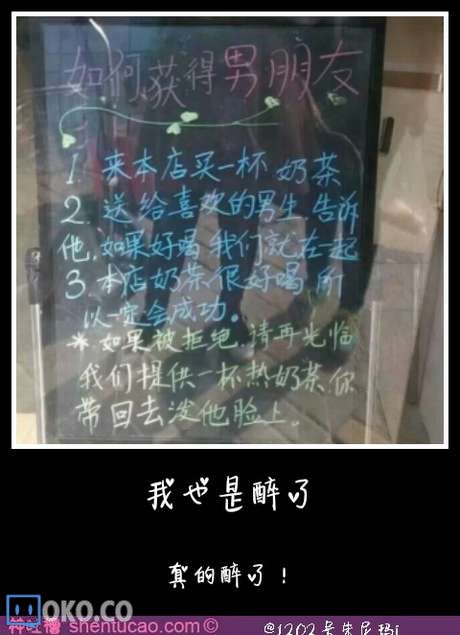 如何获得男朋友
1. 来本店买一杯 奶茶
2. 送给喜欢的男生，告诉
他，如果好喝 我们就在一起
3 本店奶茶很好喝 所
以一定会成功。
*如果被拒绝，请再光临
我们提供一杯热奶茶，你
带回去泼他脸上。
我也是醉了
真的醉了！
OKO.CO
神吐槽 shentucao.com©